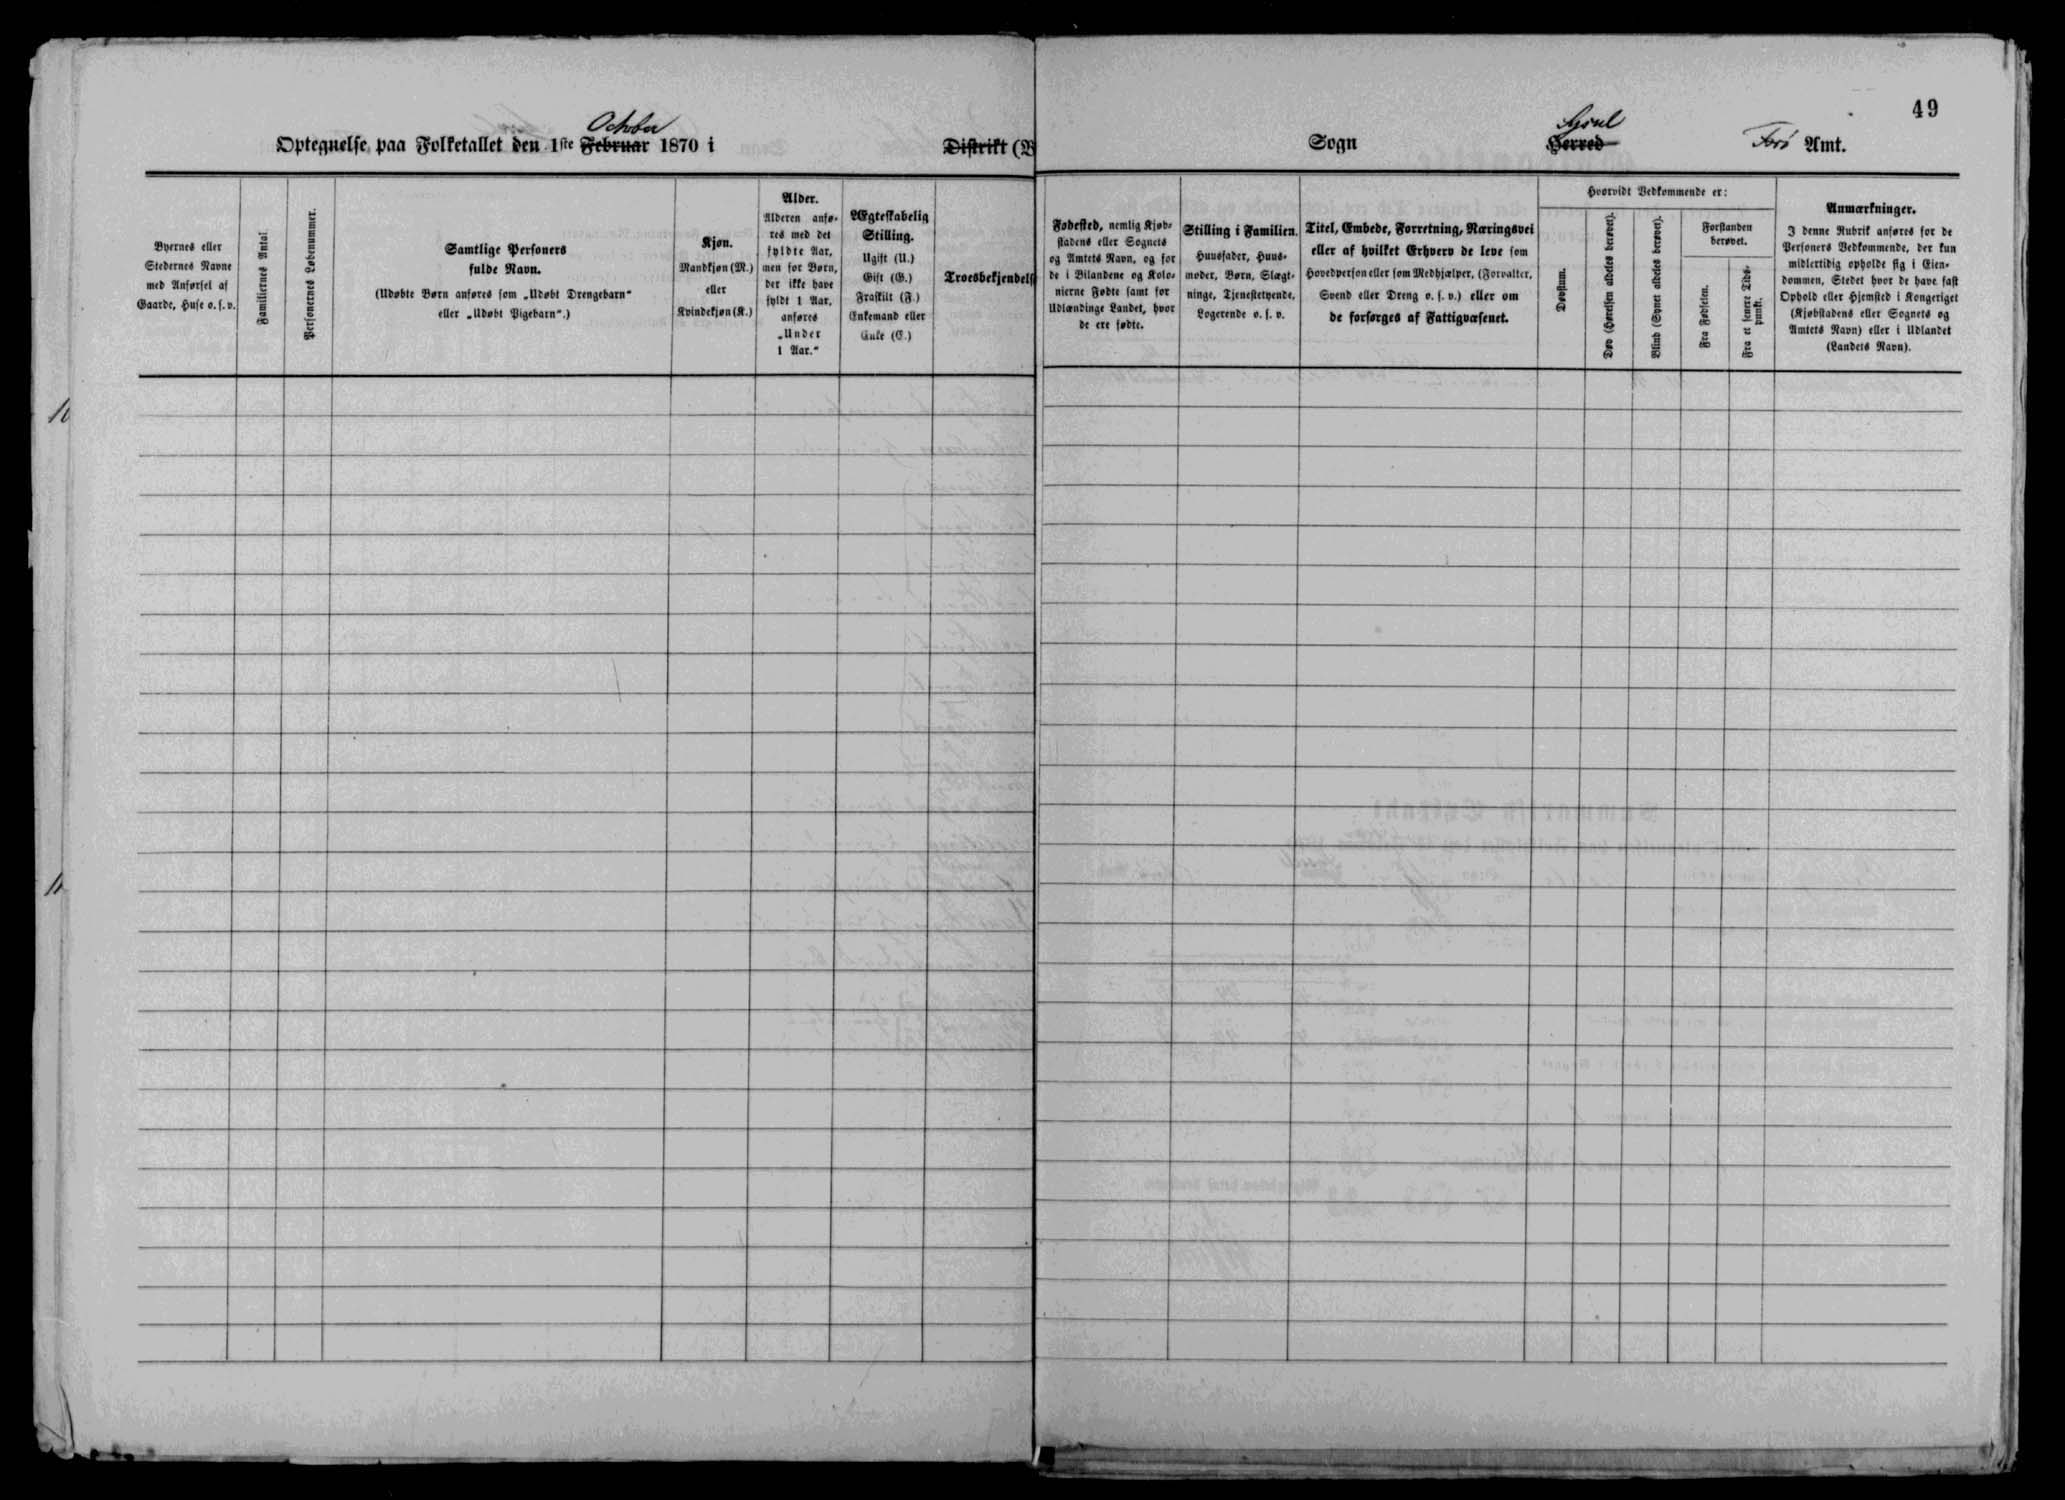 49
October
Optegnelse paa Folketallet den 1ste Februar 1870 i Distrikt (B
Sysel
Sogn Herred Færø Amt.
Byernes eller
Stedernes Navne
med Anførsel af
Gaarde, Huse o. s. v.
Familiernes Antal.
Personernes Løbenummer.
Samtlige Personers
fulde Navn.
(Udøbte Børn anføres som „Udøbt Drengebarn"
eller „Udøbt Pigebarn".)
Kjøn.
Mandkjøn (M.)
eller
Kvindekjøn (K.)
Alder.
Alderen anfø-
res med det
fyldte Aar,
men for Børn,
der ikke have
fyldt 1 Aar,
anføres
„Under
1 Aar."
Ægteskabelig
Stilling.
Ugift (U.)
Gift (G.)
Fraskilt (F.)
Enkemand eller
Enke (E.)
Troesbekjendelse
Fødested, nemlig Kjøb-
stadens eller Sognets
og Amtets Navn, og for
de i Bilandene og Kolo-
nierne Fødte samt for
Udlændinge Landet, hvor
de ere fødte.
Stilling i Familien.
Huusfader, Huus-
moder, Børn, Slægt-
ninge, Tjenestetyende,
Logerende o. s. v.
Titel, Embede, Forretning, Næringsvei
eller af hvilket Erhverv de leve som
Hovedperson eller som Medhjælper, (Forvalter,
Svend eller Dreng o. s. v.) eller om
de forsørges af Fattigvæsenet.
Hvorvidt Vedkommende er:
Døvstum.
Døv (Hørelsen aldeles berøvet).
Blind (Synet aldeles berøvet).
Forstanden
berøvet.
Fra Fødselen.
Fra et senere Tids-
punkt.
Anmærkninger.
I denne Rubrik anføres for de
Personers Vedkommende, der kun
midlertidig opholde sig i Eien-
dommen, Stedet hvor de have fast
Ophold eller Hjemsted i Kongeriget
(Kjøbstadens eller Sognets og
Amtets Navn) eller i Udlandet
(Landets Navn).